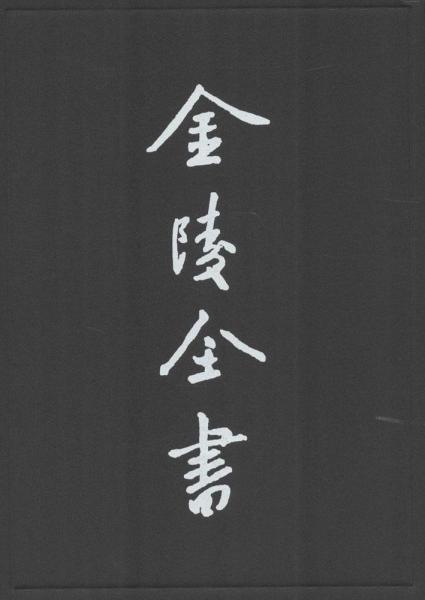 金陵全書